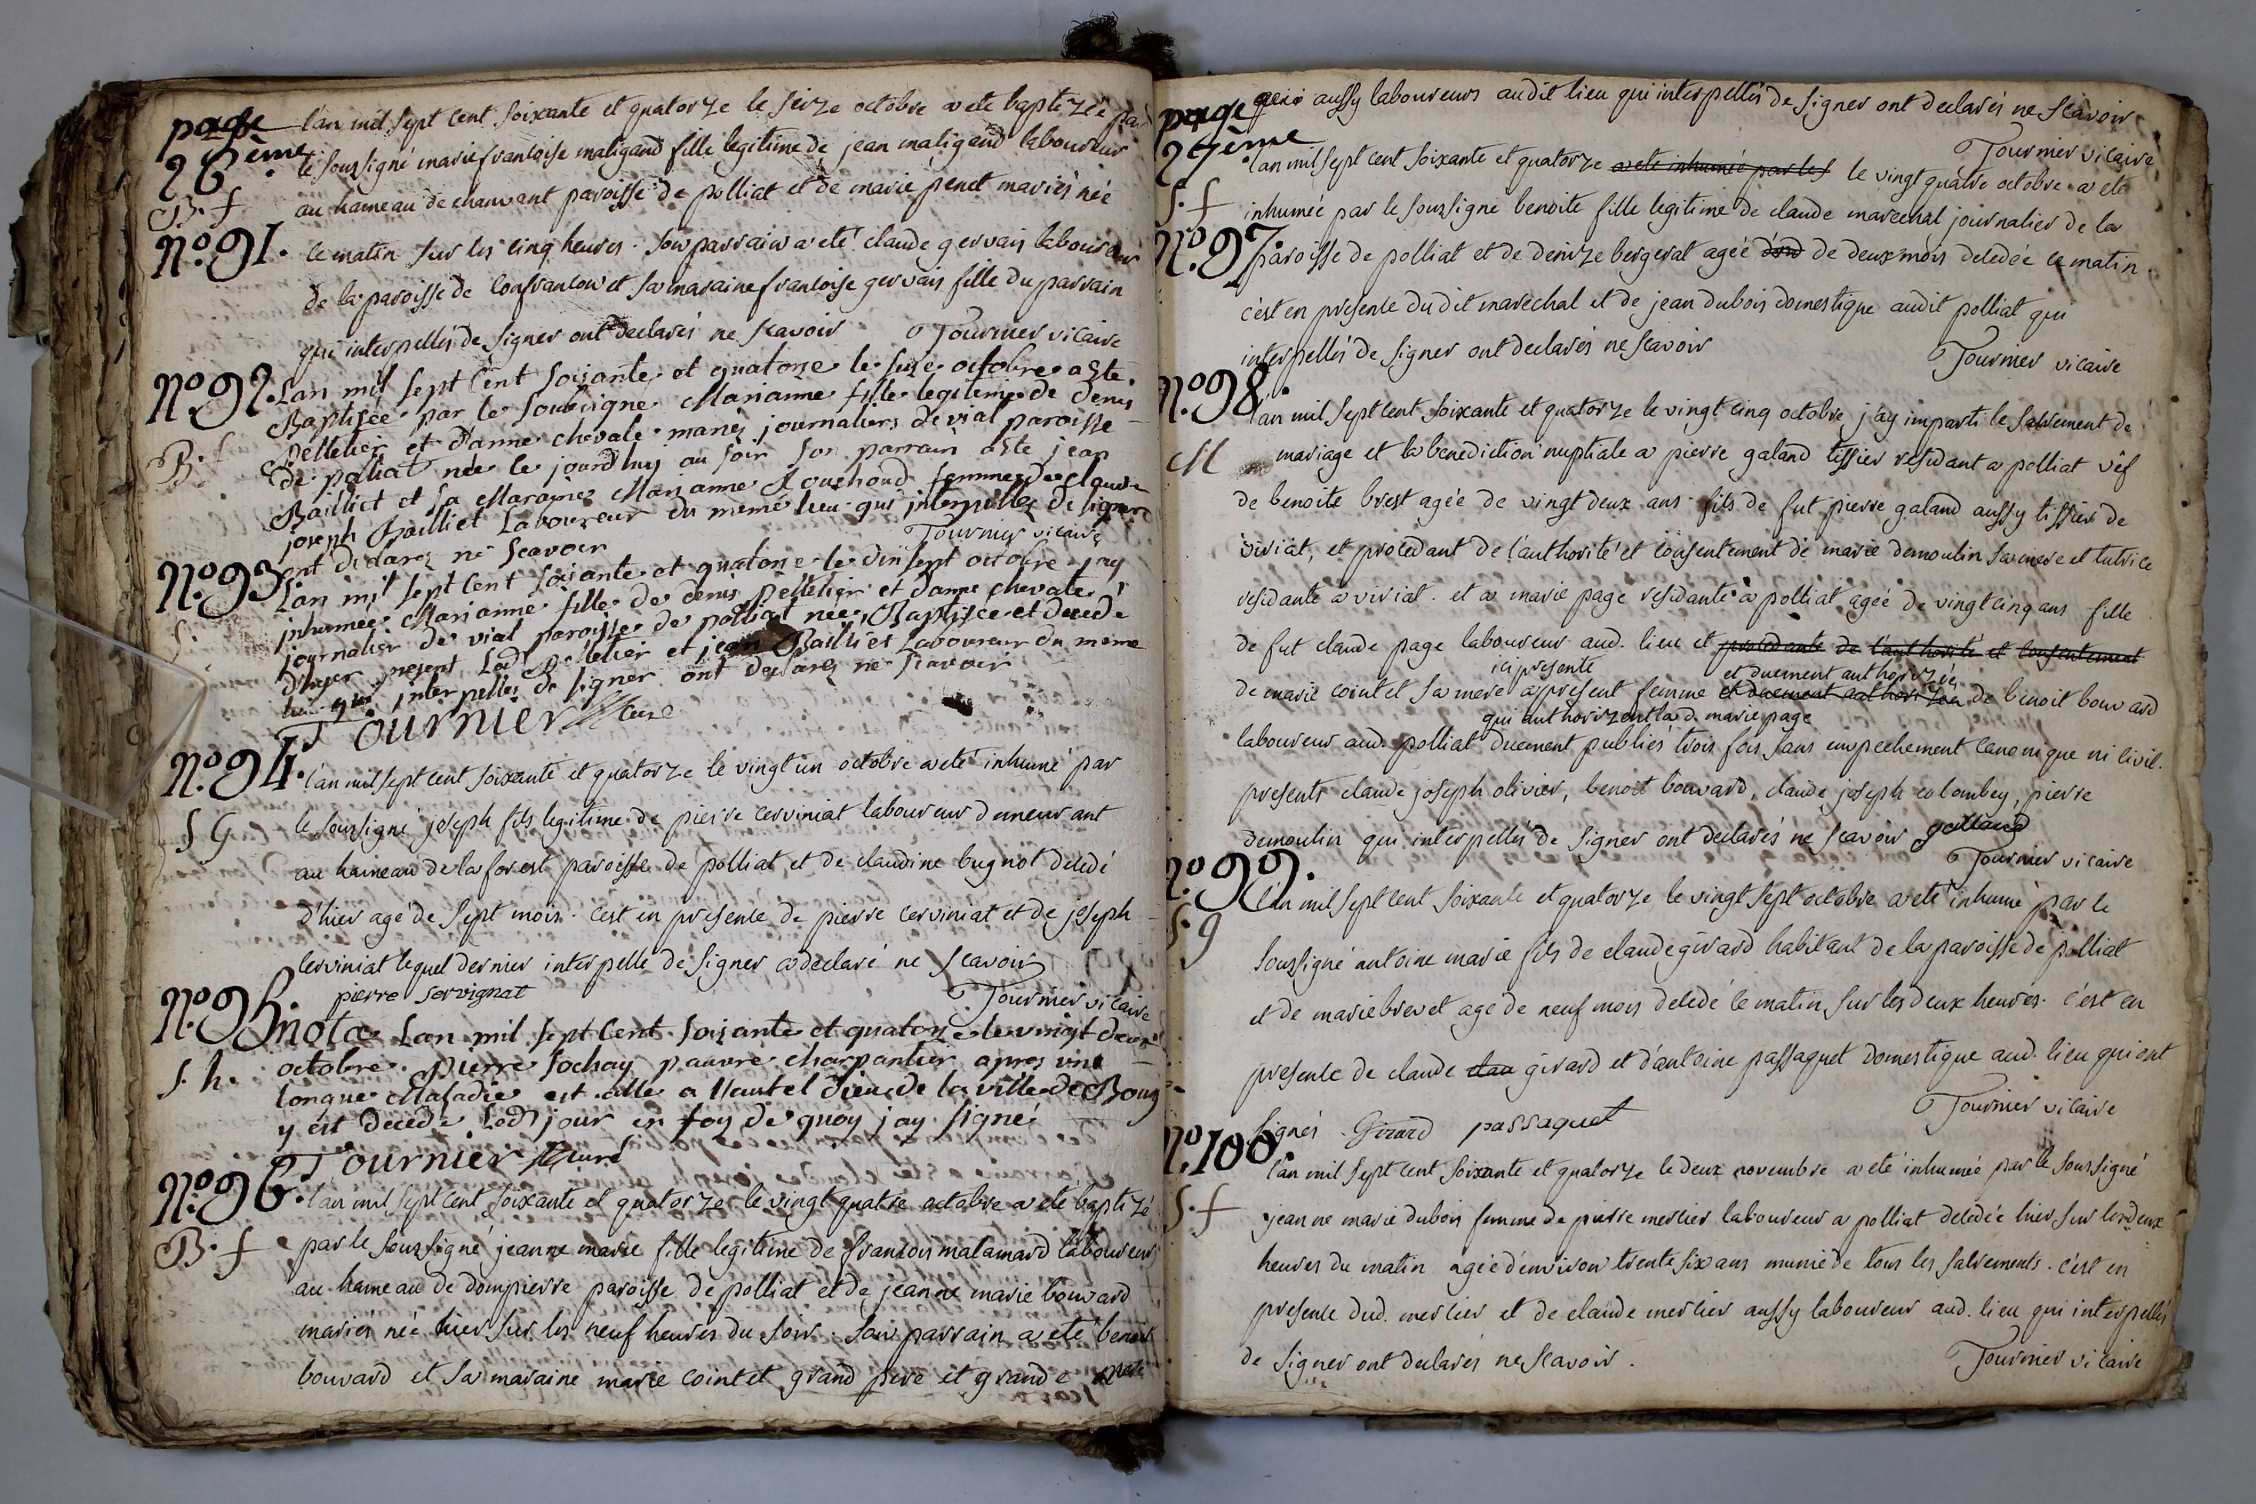 page
26ème
B. f
N.o 91.
l'an mil sept cent soixante et quatorze le seize octobre a eté baptizée par
le souzsigné marie francoise maligand fille legitime de jean maligand laboureur
au hameau de chanvant paroisse de polliat et de marie penet mariés née
le matin sur les cinq heures. son parrain a eté claude gervais laboureur
de la paroisse de confrancon et sa maraine francoise gervais fille du parrain
qui interpellés de signer ont declarés ne scavoir Tournier vicaire
N.o 92.
B. f
Lan mil sept Cent soisante et quatorse le seise octobre a Ete
Baptisée par le soubsigne Marianne fille legitime de denis
Pelletier et d'anne chevale mariés journaliers de vial paroisse
de poliat née le jourdhuy au soir son parrain a Ete jean
Bailliet et sa Maraine Marianne Rouchoud femme de claude
joseph Bailliet Laboureur du meme lieu qui interpelles de signer
ont declarez ne scavoir Tournier vicaire
N.o 93
S.
Lan mil sept Cent soisante et quatorse le dinsept octobre jay
inhumée Marianne fille de denis pelletier et danne chevale
journalier de vial paroisse de polliat née, Baptisée et decede
d'hyer present Lod. Pelletier et jean Bailliet Laboureur du meme
lieu qui interpelles de signer ont declarez ne scavoir
Tournier Curé
N.o 94.
S G
l'an mil sept cent soixante et quatorze le vingt un octobre a eté inhumé par
le souzsigné joseph fils legitime de pierre cerviniat laboureur demeurant
au hameau de la forest paroisse de polliat et de claudine bugnot decedé
d'hier agé de sept mois. c'est en presence de pierre cerviniat et de joseph
cerviniat lequel dernier interpellé de signer a declaré ne scavoir
pierre servignat Tournier vicaire
N.o 95.
S. h.
nota Lan mil sept Cent soisante et quatorze le vingt deux
octobre pierre sochay pauvre charpantier apres une
longue Maladie est alle a l'autel dieu de la ville de Bourg
y est decede Lod jour en foy de quoy jay signé
Tournier Curé
N.o 96.
B. f
l'an mil sept cent soixante et quatorze le vingt quatre octobre a eté baptizé
par le souzsigné jeanne marie fille legitime de francois malamard laboureur
au hameau de dompierre paroisse de polliat et de jeanne marie bouvard
mariés née hier sur les neuf heures du soir. son parrain a eté benoit
bouvard et sa maraine marie cointet grand pere et grande mere
page
27ème
aussy laboureurs audit lieu qui interpellés de signer ont declarés ne scavoir
Tournier vicaire
S. f
N.o 97.
l'an mil sept cent soixante et quatorze a eté inhumée par les le vingt quatre octobre a eté
inhumée par le souzsigné benoite fille legitime de claude marechal journalier de la
paroisse de polliat et de denize bergerat agée de deux mois decedée ce matin
c'est en presence dudit marechal et de jean dubois domestique audit polliat qui
interpellés de signer ont declarés ne scavoir Tournier vicaire
N.o 98.
M
l'an mil sept cent soixante et quatorze le vingt cinq octobre j'ay imparti le sacrement de
mariage et la benediction nuptiale a pierre galand tissier residant a polliat vëf
de benoite brest agée de vingt deux ans fils de fut pierre galand aussy tissier de
viriat, et procedant de l'authorité et consentement de marie demoulin sa mere et tutrice
residante a viriat. et a marie page residante a polliat agée de vingt cinq ans fille
de fut claude page laboureur aud. lieu et procedante de l'authorité et consentement
ici presente et duement authorizée
de marie cointet sa mere apresent femme et duement authorizée de benoit bouvard
qui authorizent lad. marie page
laboureur aud. polliat duement publiés trois fois sans empechement canonique ni civil.
presents claude joseph olivier, benoit bouvard, claude joseph colombey, pierre
demoulin qui interpellés de signer ont declarés ne scavoir galland
Tournier vicaire
N.o 99.
S. g
l'an mil sept cent soixante et quatorze le vingt sept octobre a eté inhumé par le
souzsigné antoine marie fils de claude girard habitant de la paroisse de polliat
et de marie brevet agé de neuf mois decedé le matin sur les deux heures. c'est en
presence de claude clau girard et d'antoine passaquet domestique aud. lieu qui ont
signés. Girard passaquet Tournier vicaire
N.o 100.
S. f
l'an mil sept cent soixante et quatorze le deux novembre a eté inhumée par le souzsigné
jeanne marie dubois femme de pierre mercier laboureur a polliat decedée hier sur les deux
heures du matin agée d'environ trente six ans munie de tous les sacrements. c'est en
presence dud. mercier et de claude mercier aussy laboureur aud. lieu qui interpellés
de signer ont declarés ne scavoir. Tournier vicaire